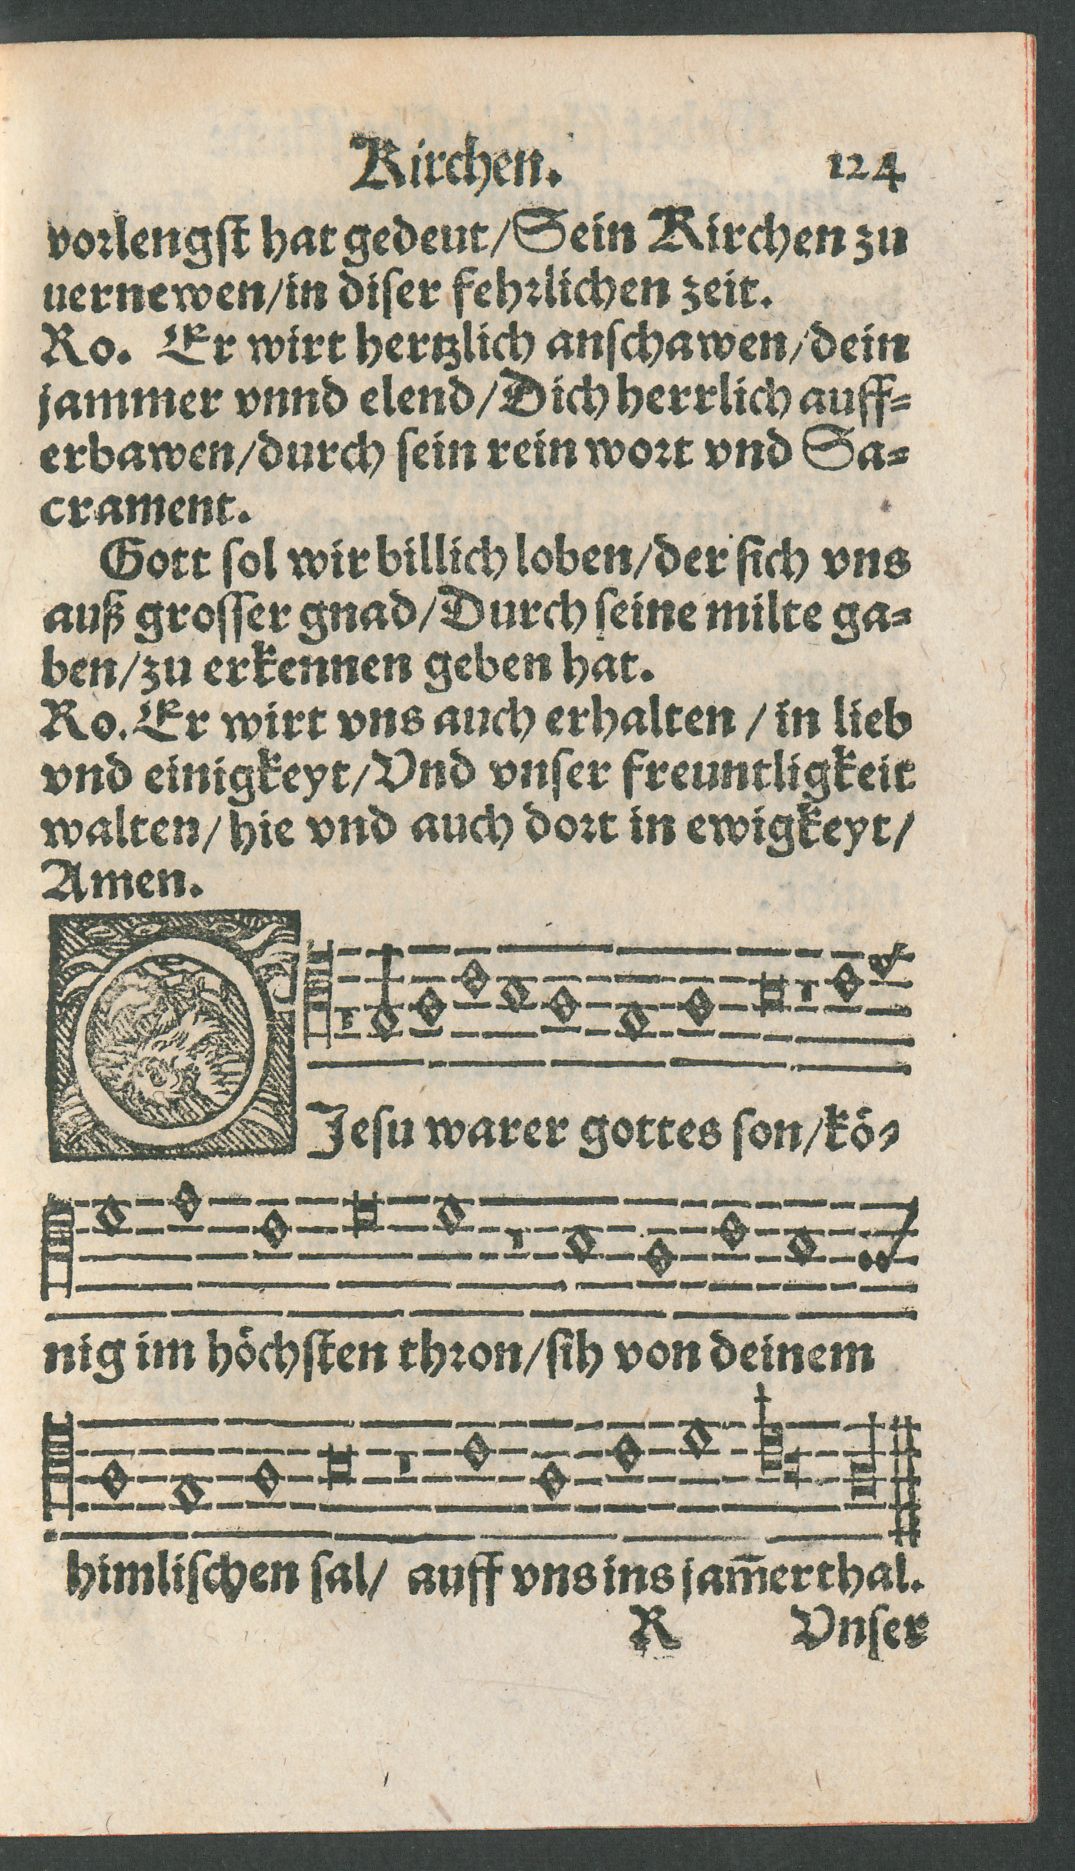 Kirchen. 124
vorlengst hat gedeut/Sein Kirchen zu
uernewen/in diser fehrlichen zeit.
Ro. Er wirt hertzlich anschawen/dein
jammer vnnd elend/Dich herrlich auff-
erbawen/durch sein rein wort vnd Sa-
crament.
Gott sol wir billich loben/der sich vns
auß grosser gnad/Durch seine milte ga-
ben/zu erkennen geben hat.
Ro. Er wirt vns auch erhalten / in lieb
vnd einigkeyt/Vnd vnser freuntligkeit
walten/hie vnd auch dort in ewigkeyt/
Amen.
O Jesu warer gottes son/kö-
nig im höchsten thron/sih von deinem
himlischen sal/ auff vns ins jam̄erthal.
R Vnser